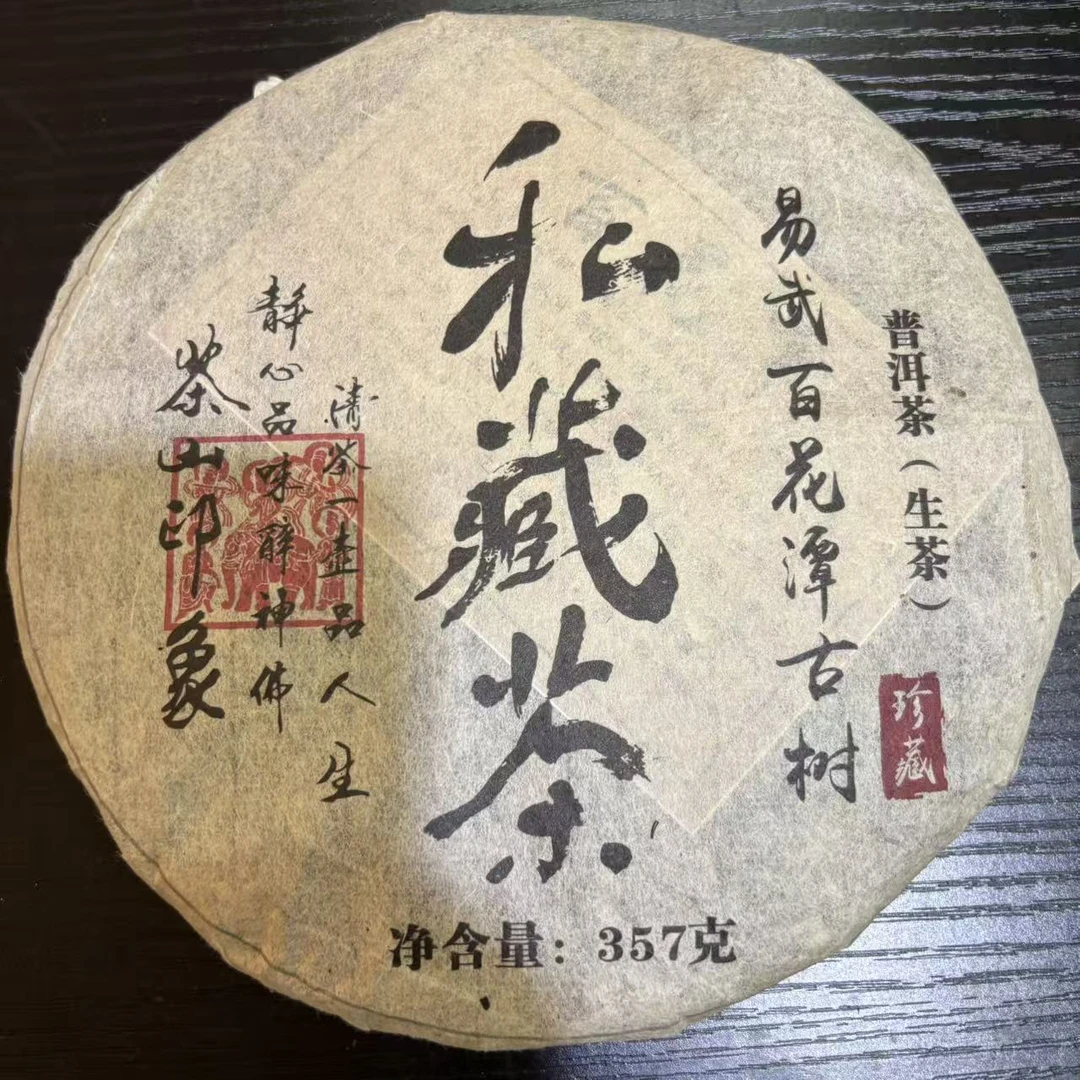 普洱茶（生茶）
珍藏
易武百花潭古树
私藏茶
清茶一壶品人生
静心品味醉神佛
茶山印象
净含量：357克